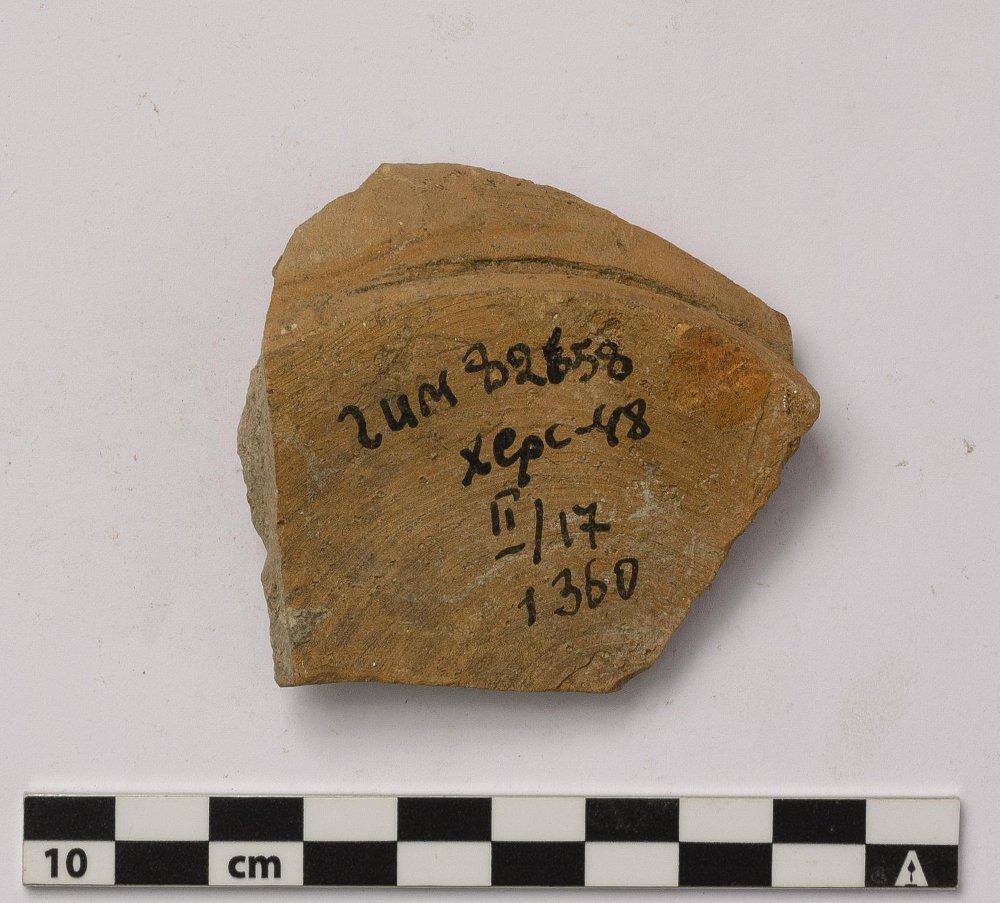 гим 82658
херс-48
II/17
1360
10 cm